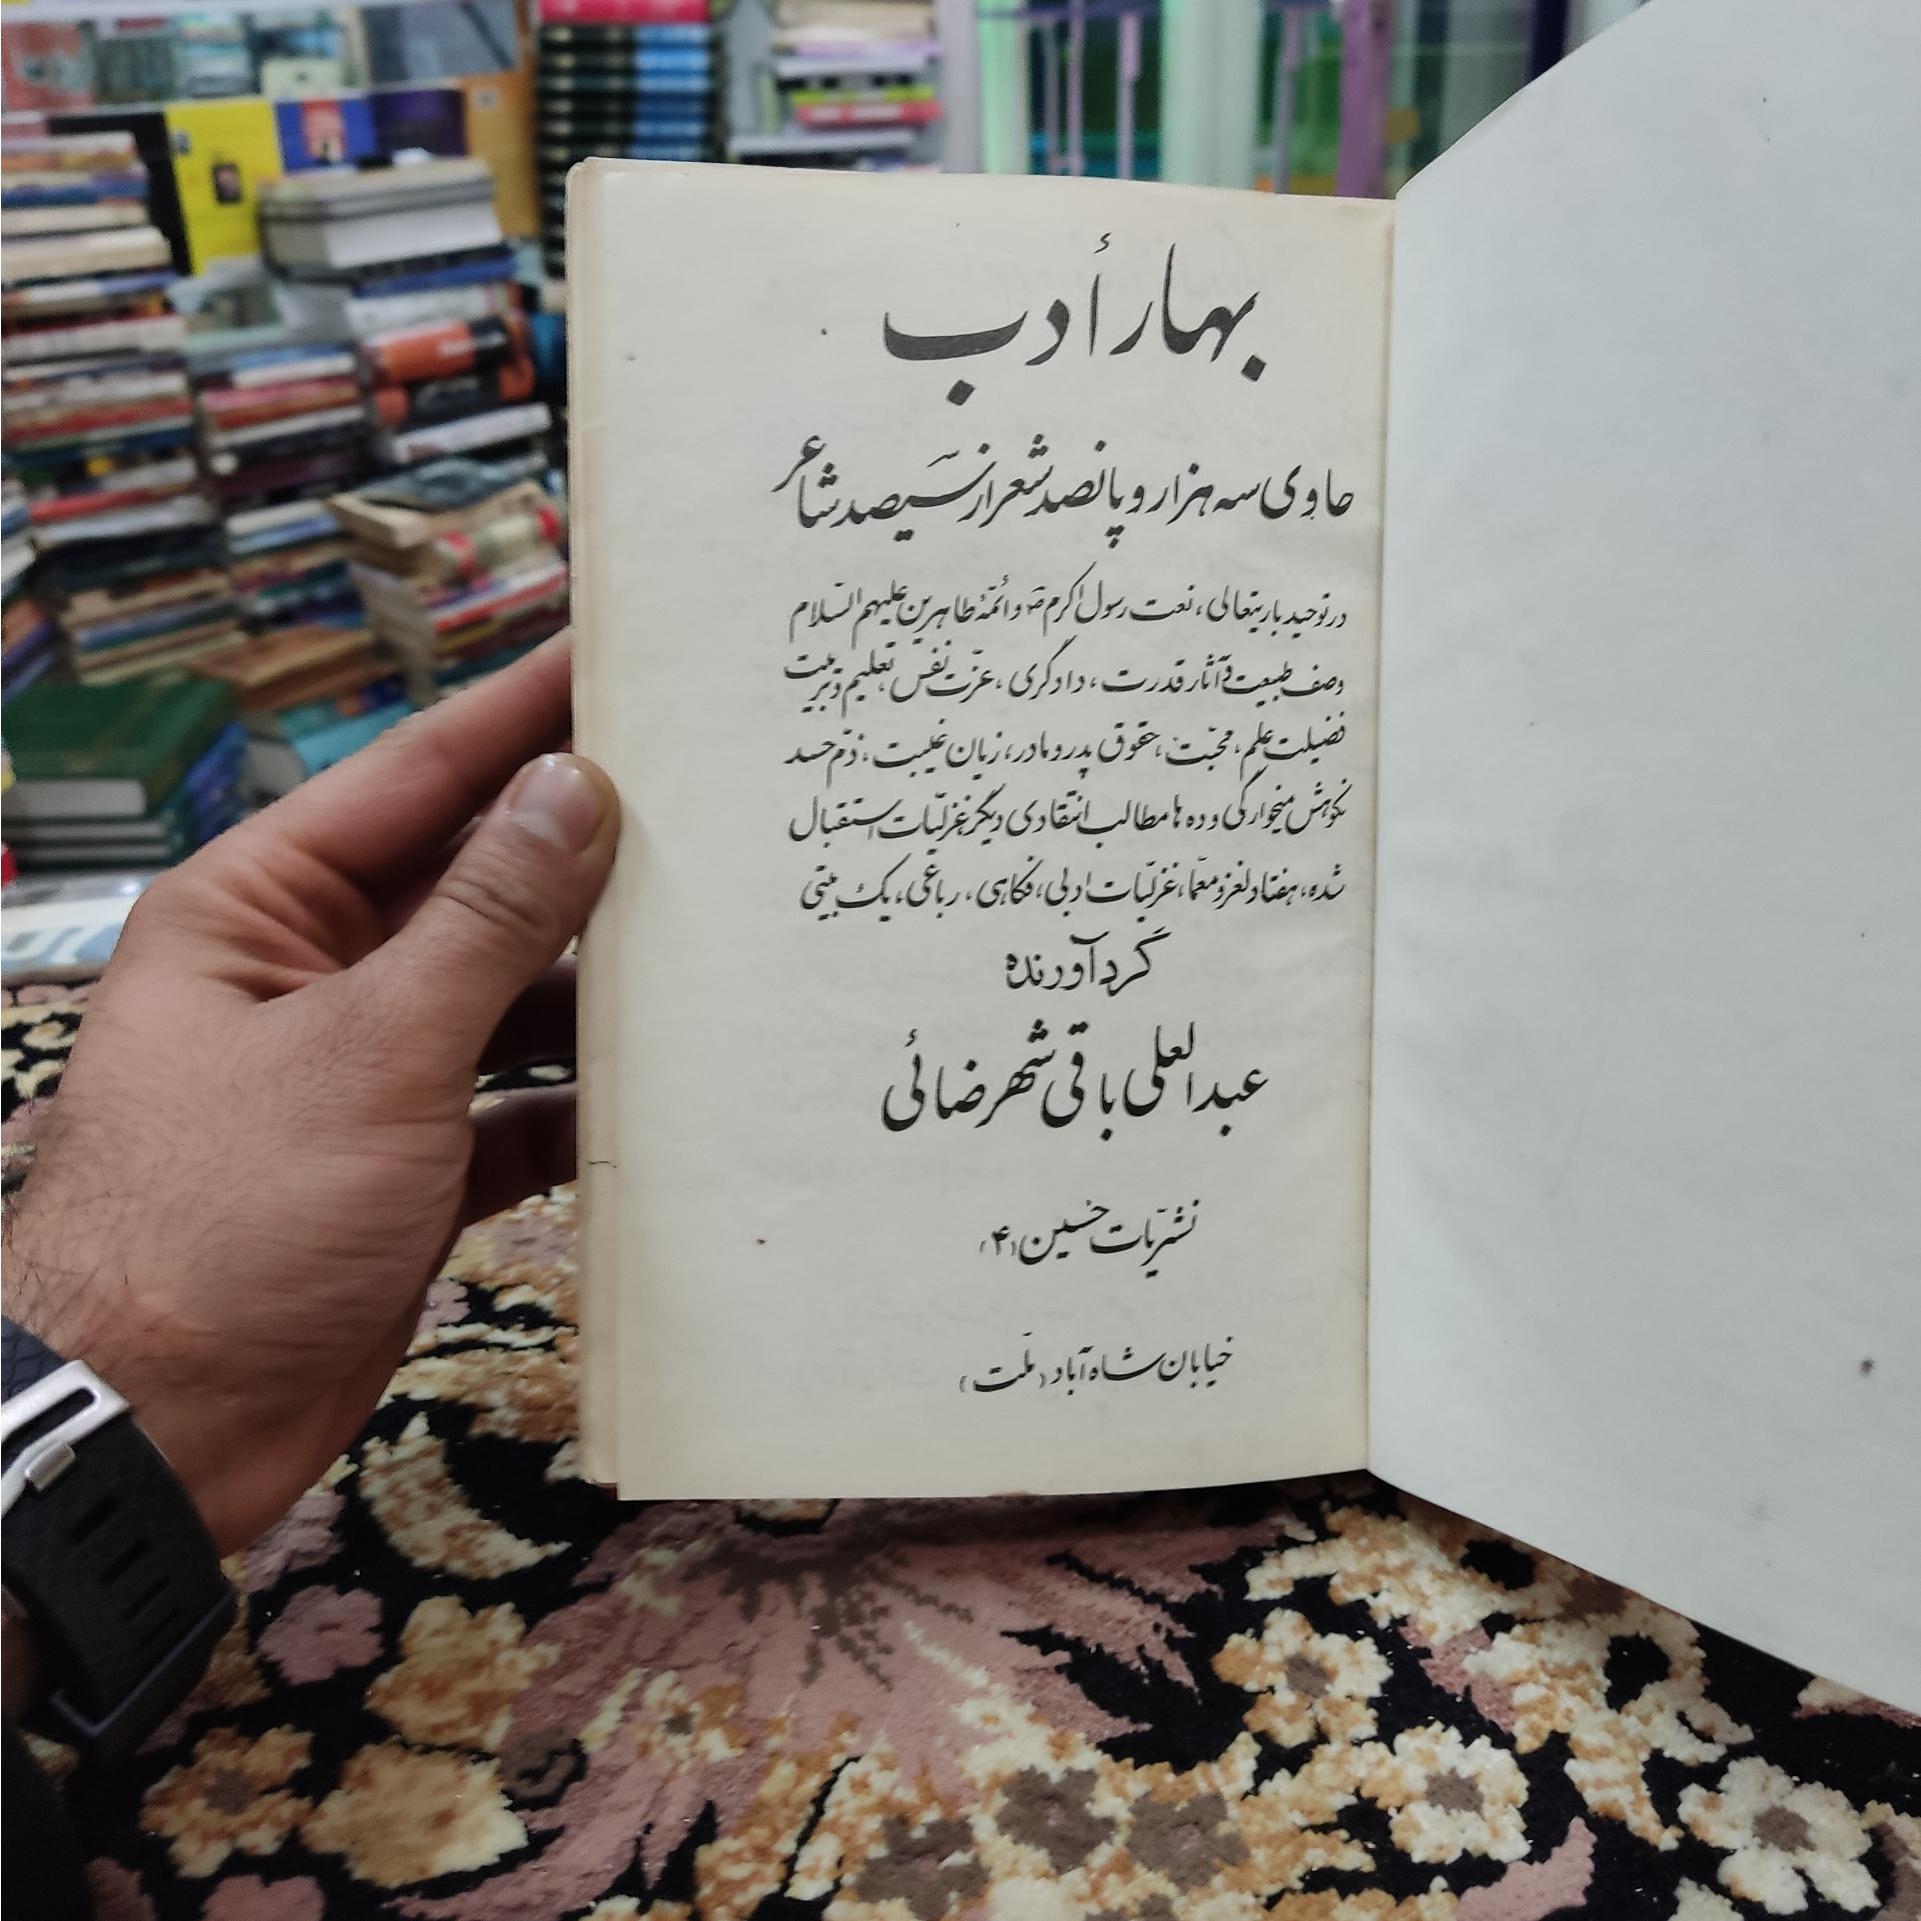 بهار أدب
حاوی سه هزار و پانصد شعر از سیصد شاعر
در توحید باریتعالی، نعت رسول اکرم ص و ائمّهٔ طاهرین علیهم السّلام
وصف طبیعت و آثار قدرت، دادگری، عزّت نفس، تعلیم و تربیت
فضیلت علم، محبّت، حقوق پدر و مادر، زیان غیبت، ذمّ حسد
نکوهش میخوارگی و ده ها مطالب انتقادی دیگر غزلیّات استقبال
شده، هفتاد لغز و معمّا، غزلیّات ادبی، فکاهی، رباعی، یک بیتی
گردآورنده
عبدالعلی باقی شهرضائی
نشریّات خسین (۴)
خیابان شاه آباد (ملّت)